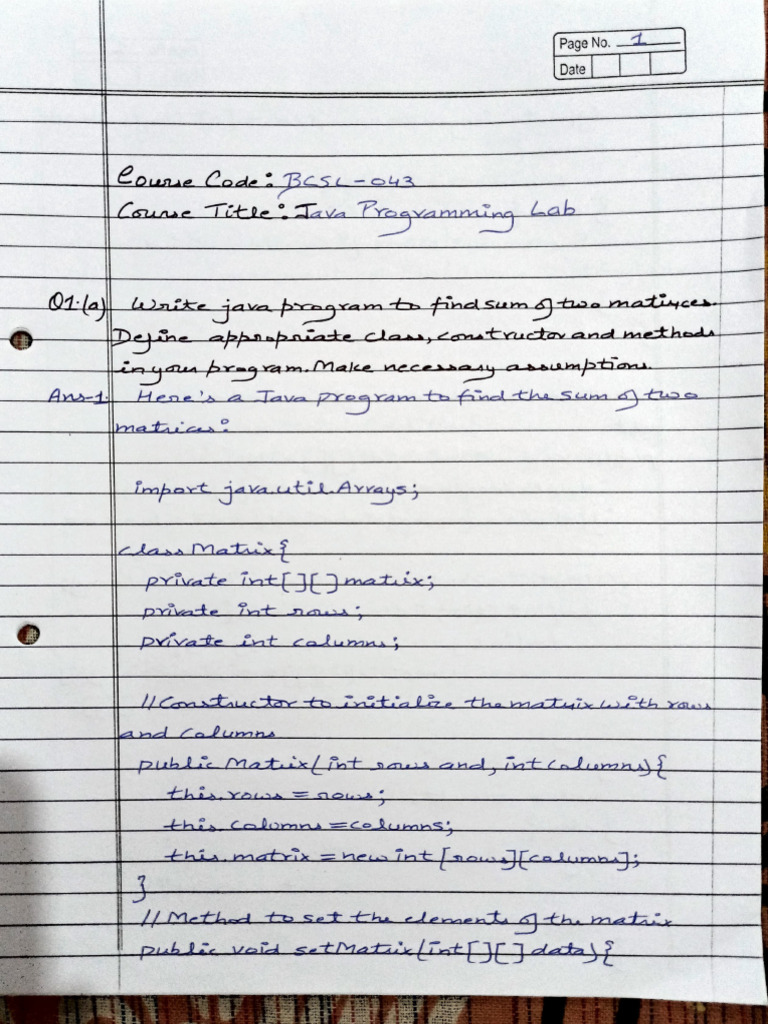 Page No. 1
Date
Course Code: BCSL-043
Course Title: Java Programming Lab
Q1.(a) Write java program to find sum of two matirxces.
Define appropriate class, constructor and methods
in your program. Make necessary assumptions.
Ans-1. Here's a Java program to find the sum of two
matrices:
import java.util.Arrays;
class Matrix{
private int[][] matrix;
private int rows;
private int columns;
//Constructor to initialize the matrix with rows
and columns
public Matrix(int rows and, int columns){
this.rows = rows;
this.columns = columns;
this.matrix = new int [rows][columns];
}
//Method to set the elements of the matrix
public void setMatrix(int[][] data){